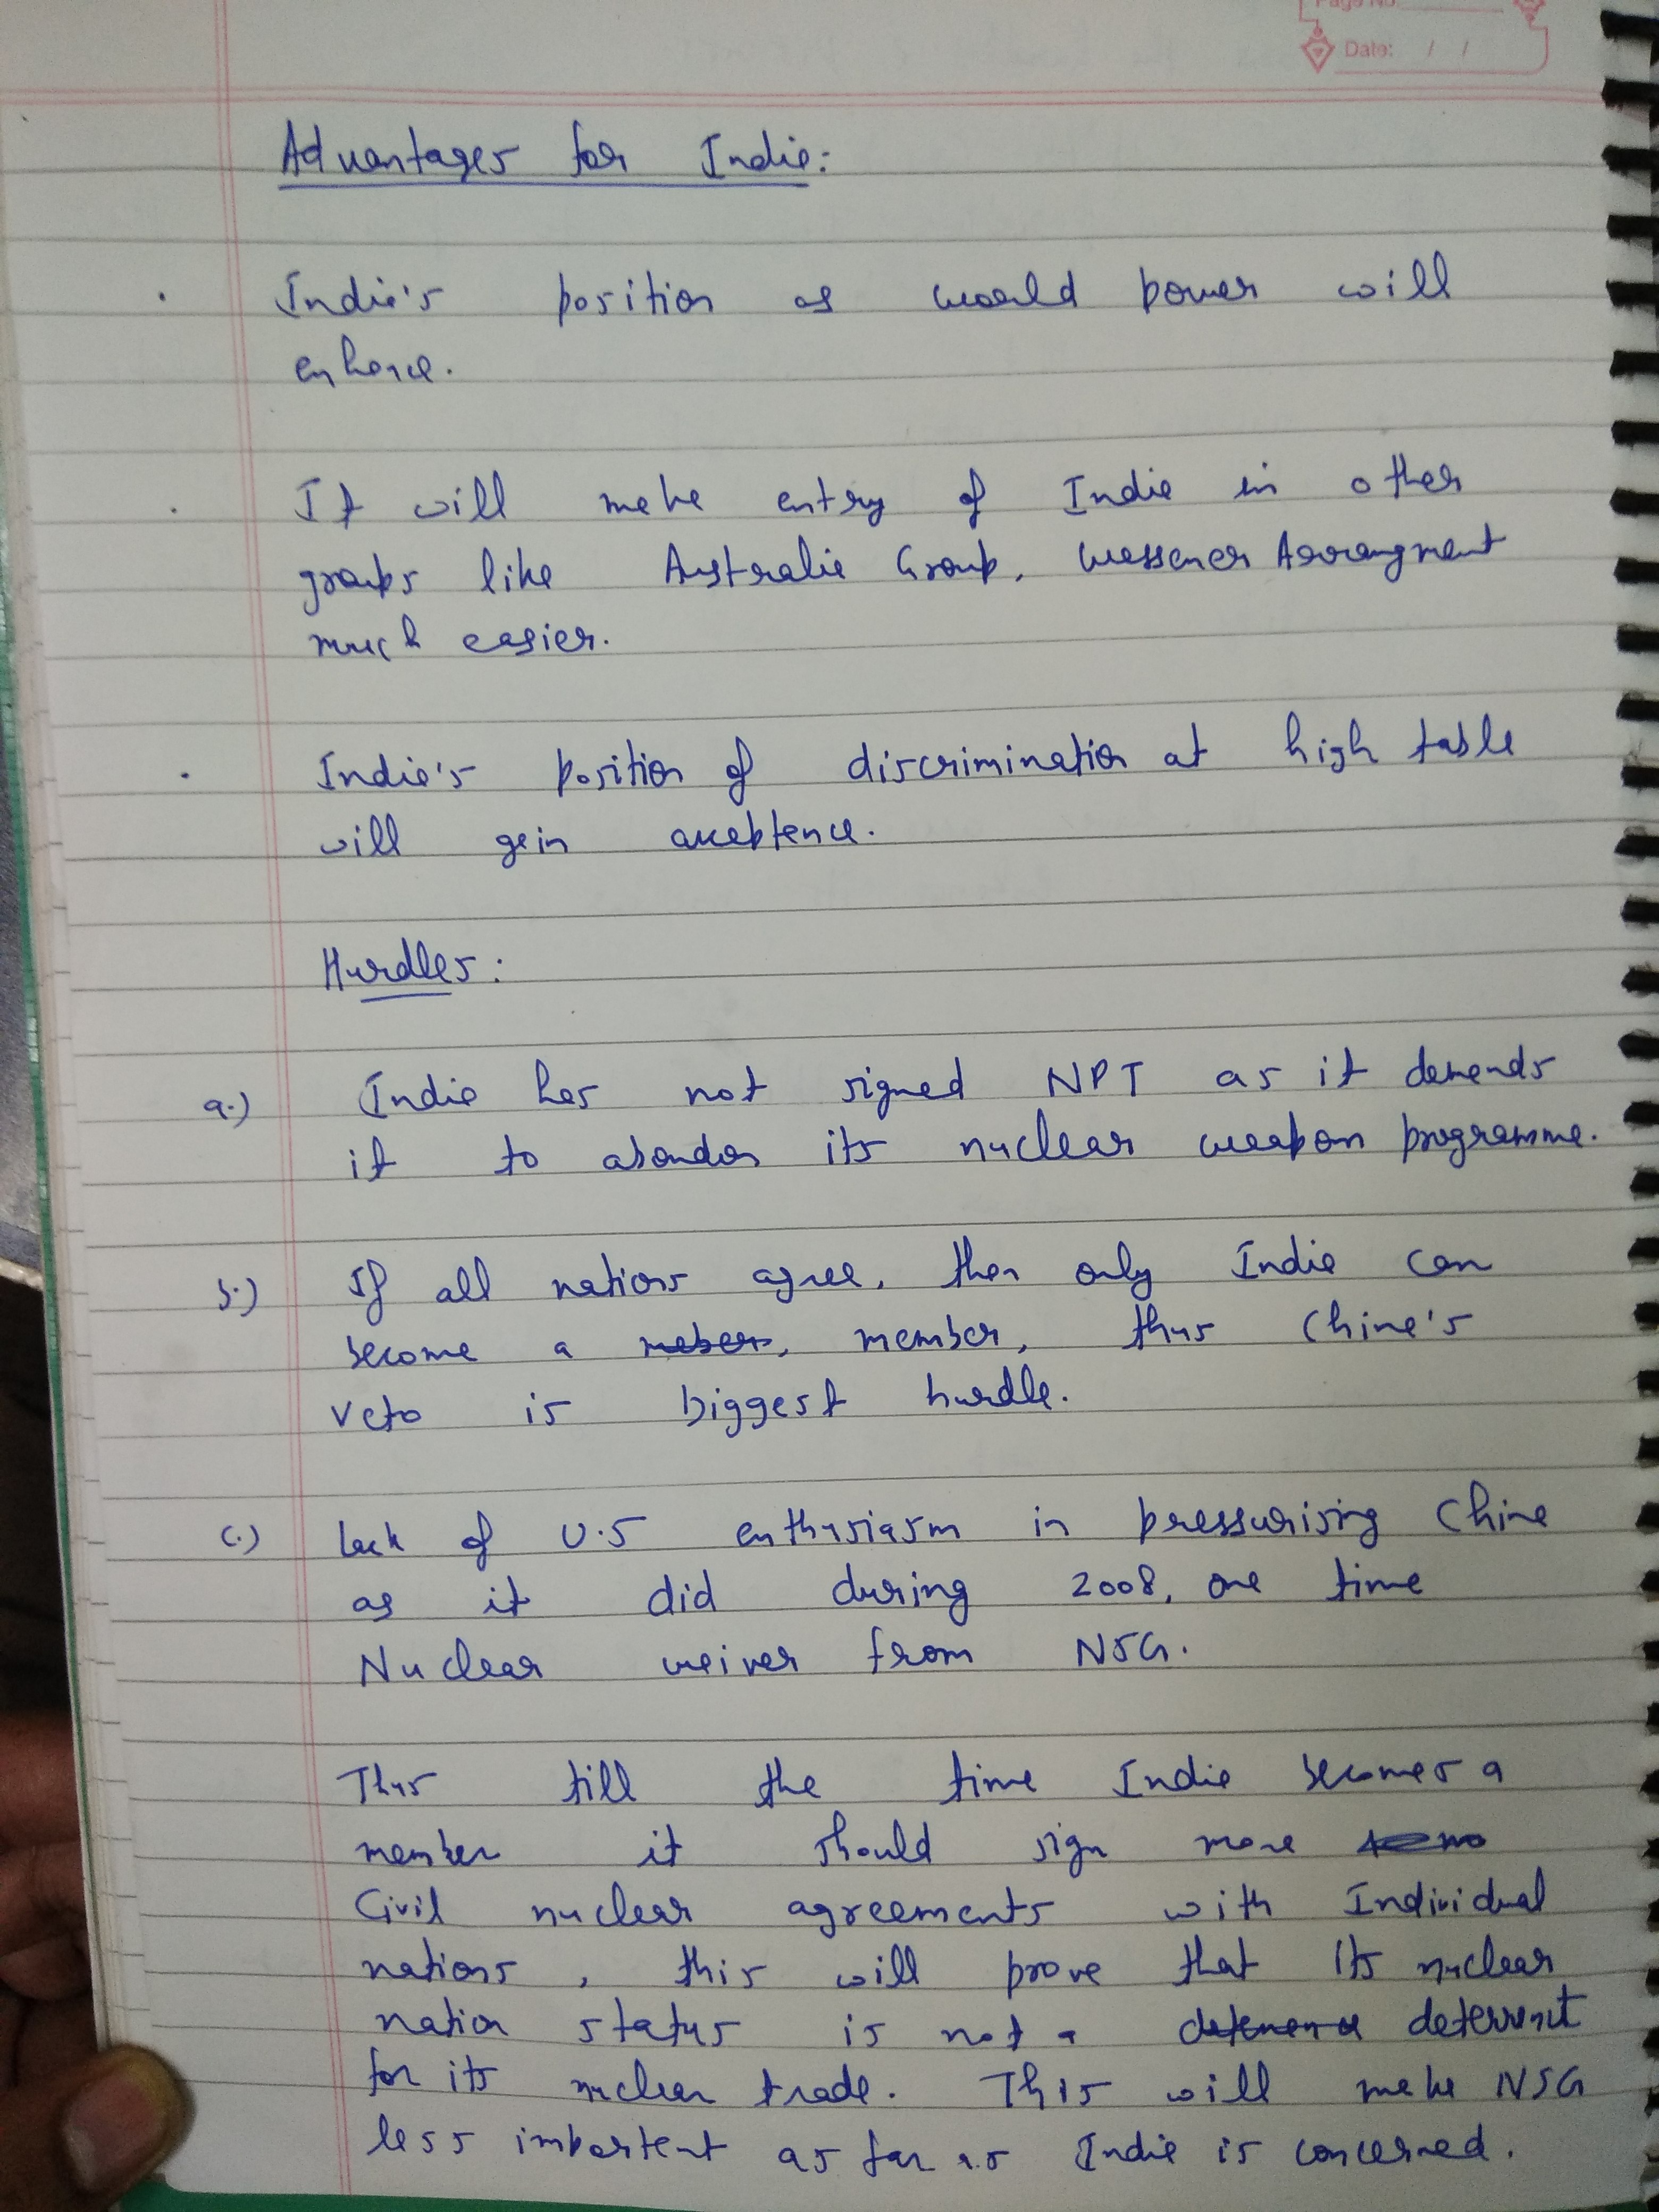 Page No
Date: / /
Advantages for India:
. India's position as world power will
enhance.
. It will make entry of India in other
groups like Australia Group, Wassener Arrangment
much easier.
. India's position of discrimination at high table
will gain acceptance.
Hurdles:
a.) India has not signed NPT as it demands
it to abandon its nuclear weapon programme.
b.) If all nations agree, then only India can
become a member, thus China's
veto is biggest hurdle.
c.) Lack of U.S enthusiasm in pressurising China
as it did during 2008, one time
Nuclear waiver from NSG.
Thus till the time India becomes a
member it should sign more
Civil nuclear agreements with Individual
nations, this will prove that its nuclear
nation status is not a deterrent
for its nuclear trade. This will make NSG
less important as far as India is concerned.